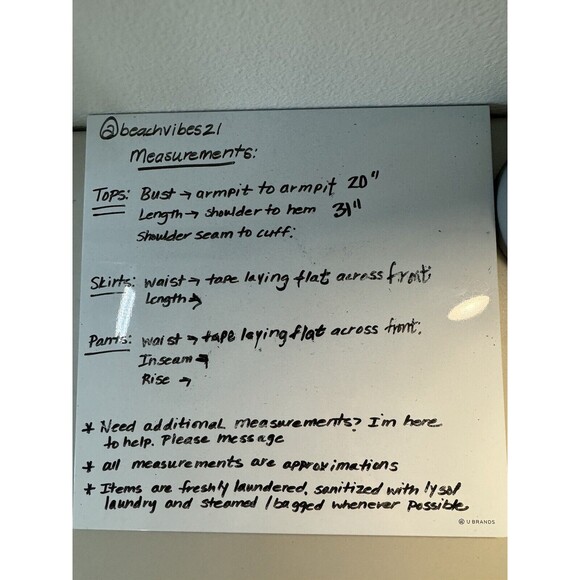 @beachvibes21
Measurements:
Tops: Bust → armpit to armpit 20"
Length → shoulder to hem 31"
Shoulder seam to cuff:
Skirts: waist → tape laying flat across front:
Length →
Pants: waist → tape laying flat across front.
Inseam →
Rise →
* Need additional measurements? I'm here
to help. Please message
* all measurements are approximations
* Items are freshly laundered, sanitized with lysol
laundry and steamed / bagged whenever possible.
U BRANDS